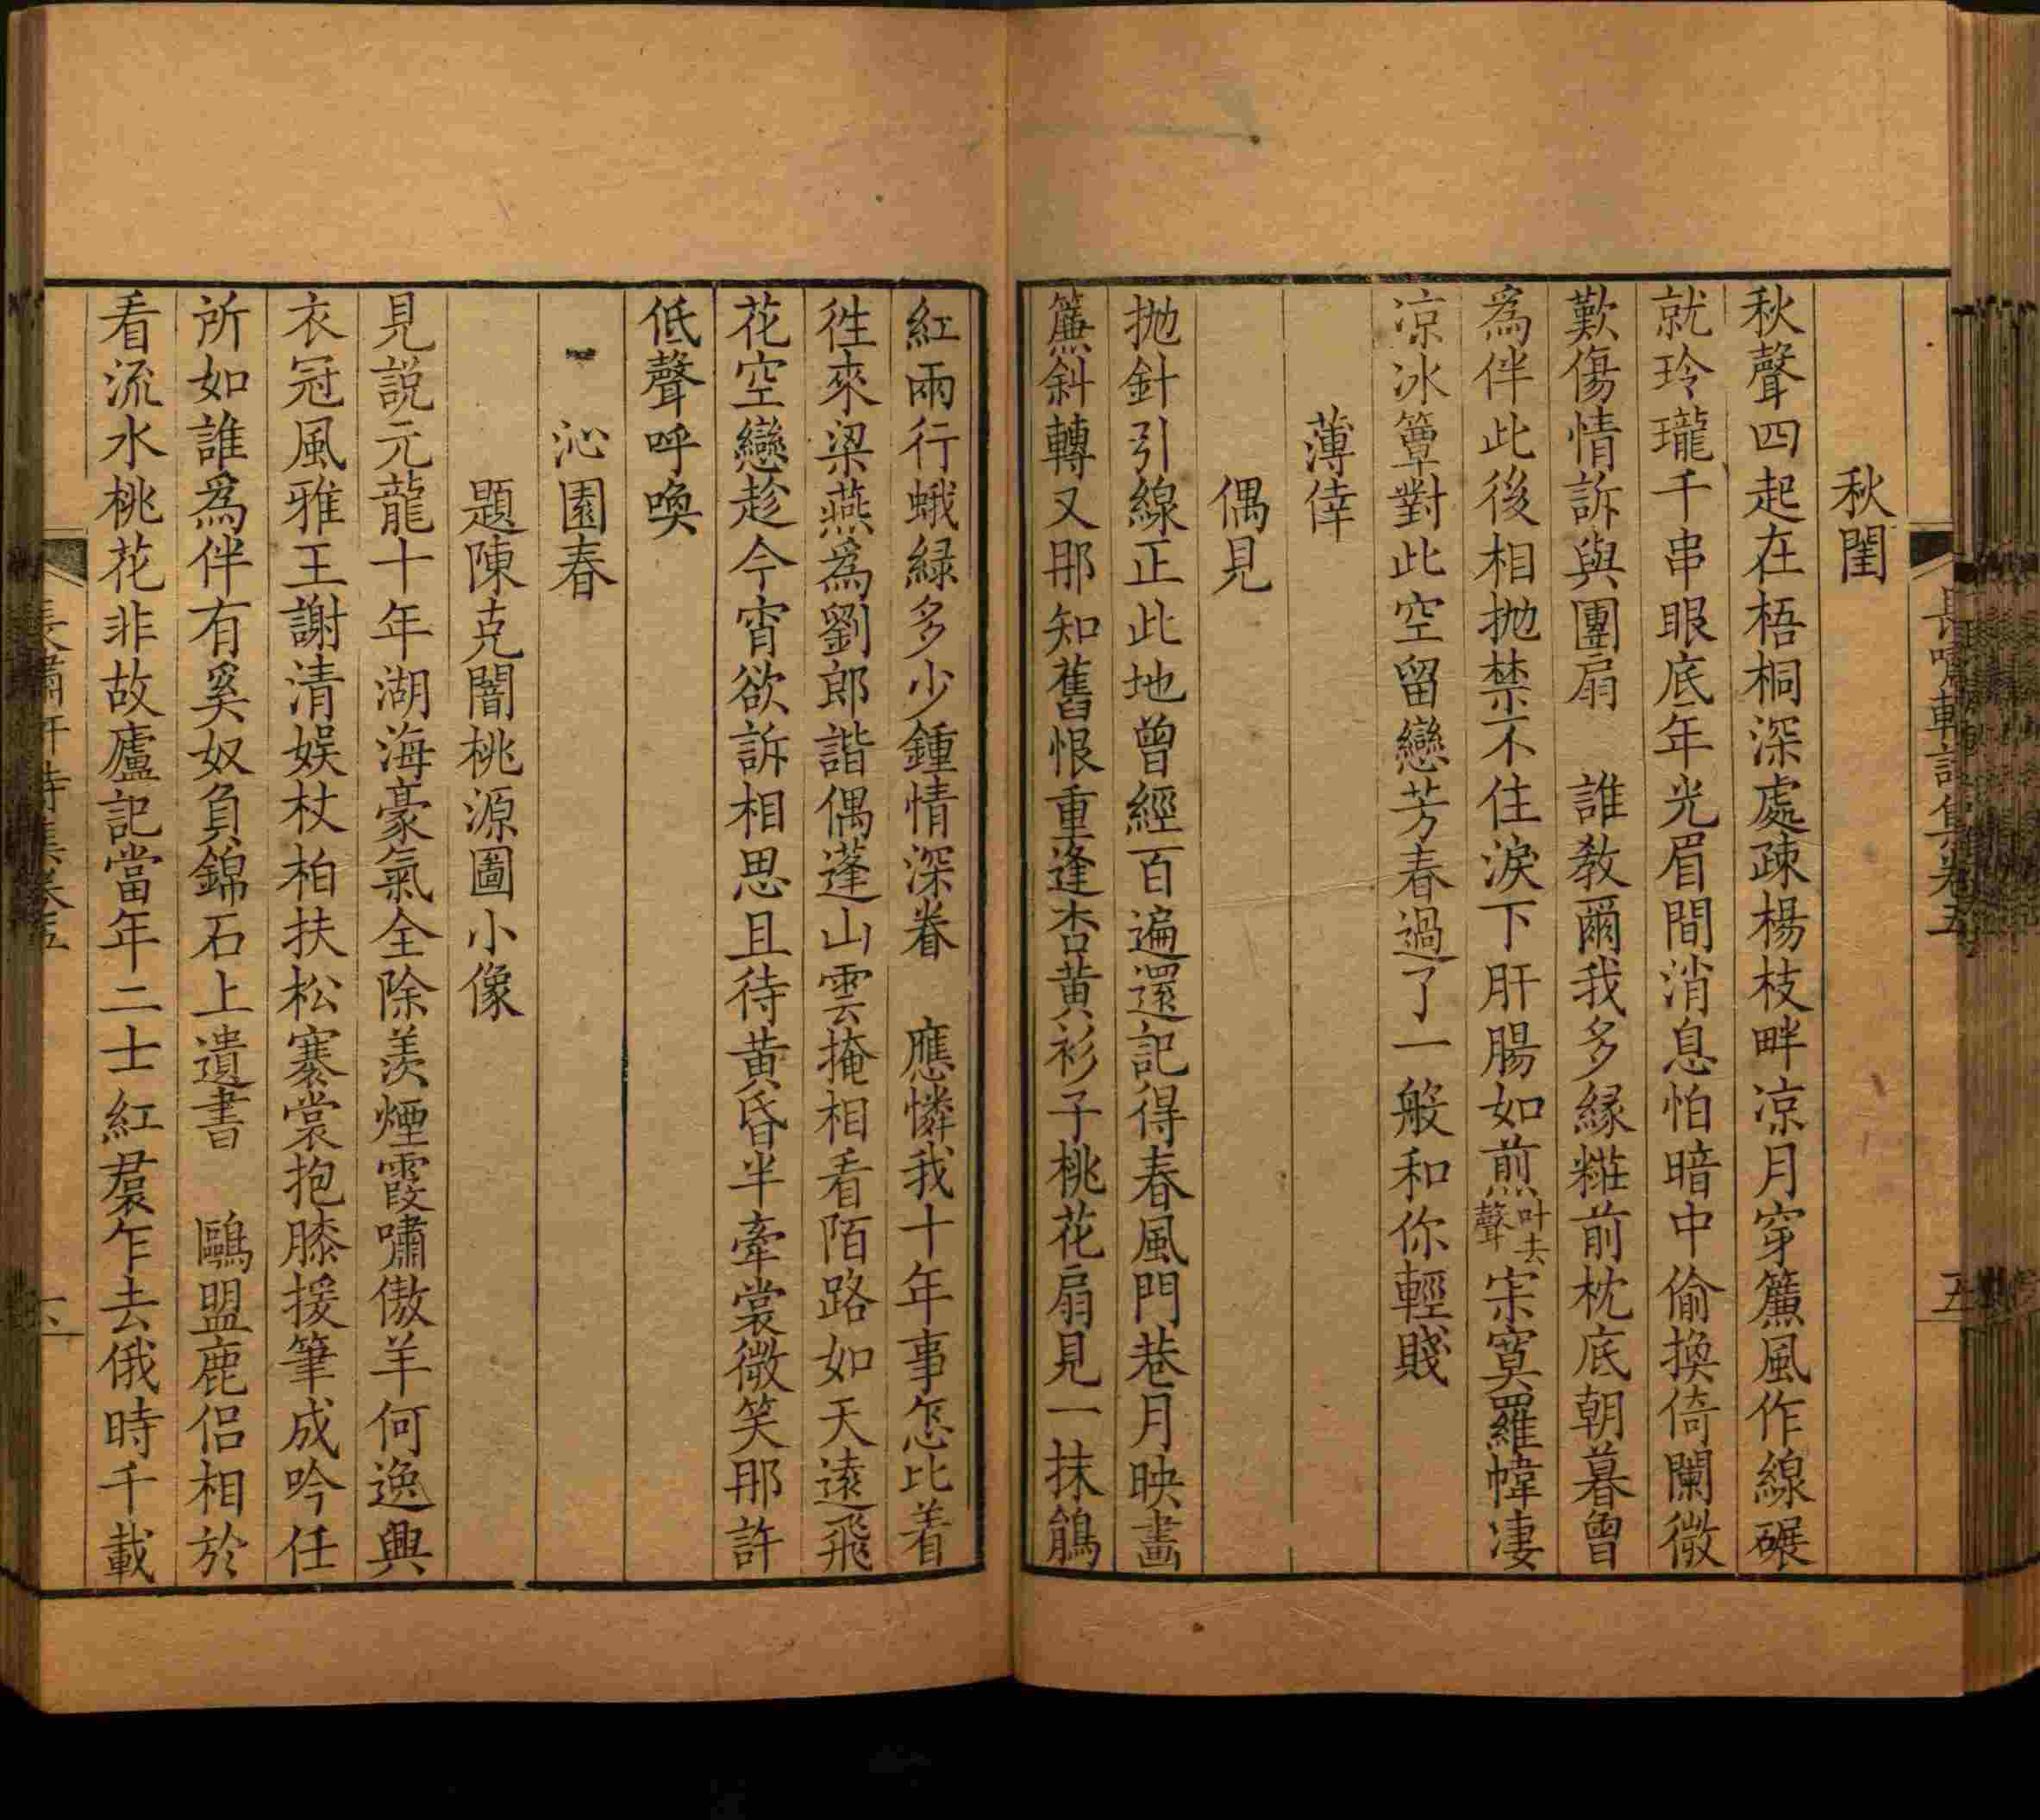 長嘯軒詩集卷五
五
秋閨
秋聲四起在梧桐深處疎楊枝畔凉月穿簾風作線碾
就玲瓏千串眼底年光眉間消息怕暗中偷換倚闌微
歎傷情訴與團扇　誰教爾我多緣糚前枕底朝暮曾
爲伴此後相抛禁不住淚下肝腸如煎叶去聲宗寞羅幃凄
凉冰簟對此空留戀芳春過了一般和你輕賤
薄倖
偶見
抛針引線正此地曾經百遍還記得春風門巷月映畫
簾斜轉又那知舊恨重逢杏黄衫子桃花扇見一抹鵑
紅兩行蛾緑多少鍾情深眷　應憐我十年事怎比着
徃來梁燕爲劉郎諧偶蓬山雲掩相看陌路如天遠飛
花空戀趁今宵欲訴相思且待黄昏半牽裳微笑那許
低聲呼喚
沁園春
題陳克闇桃源圖小像
見説元龍十年湖海豪氣全除羨煙霞嘯傲羊何逸興
衣冠風雅王謝清娱杖柏扶松褰裳抱膝援筆成吟任
所如誰爲伴有奚奴負錦石上遺書　鷗盟鹿侣相於
看流水桃花非故廬記當年二士紅裠乍去俄時千載
長嘯軒詩集卷五
六